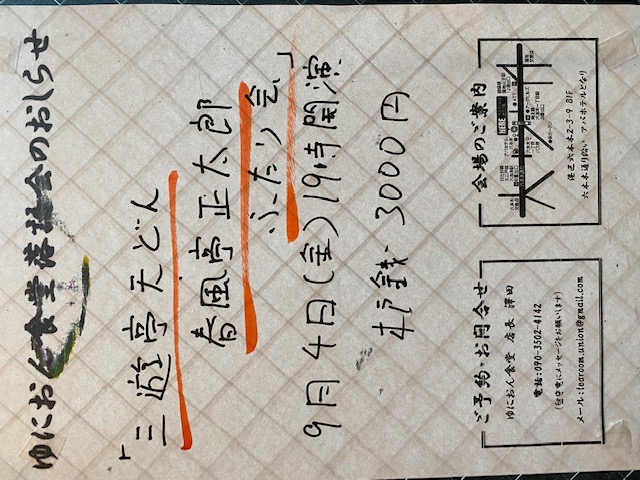 ゆにおん食堂 落語会のおしらせ
「三遊亭天どん
春風亭正太郎
ふたり会」
9月4日(金)19時開演
木戸銭 3000円
ご予約・お問合せ
ゆにおん食堂 店長 澤田
電話:090-3502-4142
(留守電にメッセージをお願いします)
メール:tearoom.union@gmail.com
会場のご案内
港区六本木2-3-9 B1F
六本木通り沿い アパホテルとなり